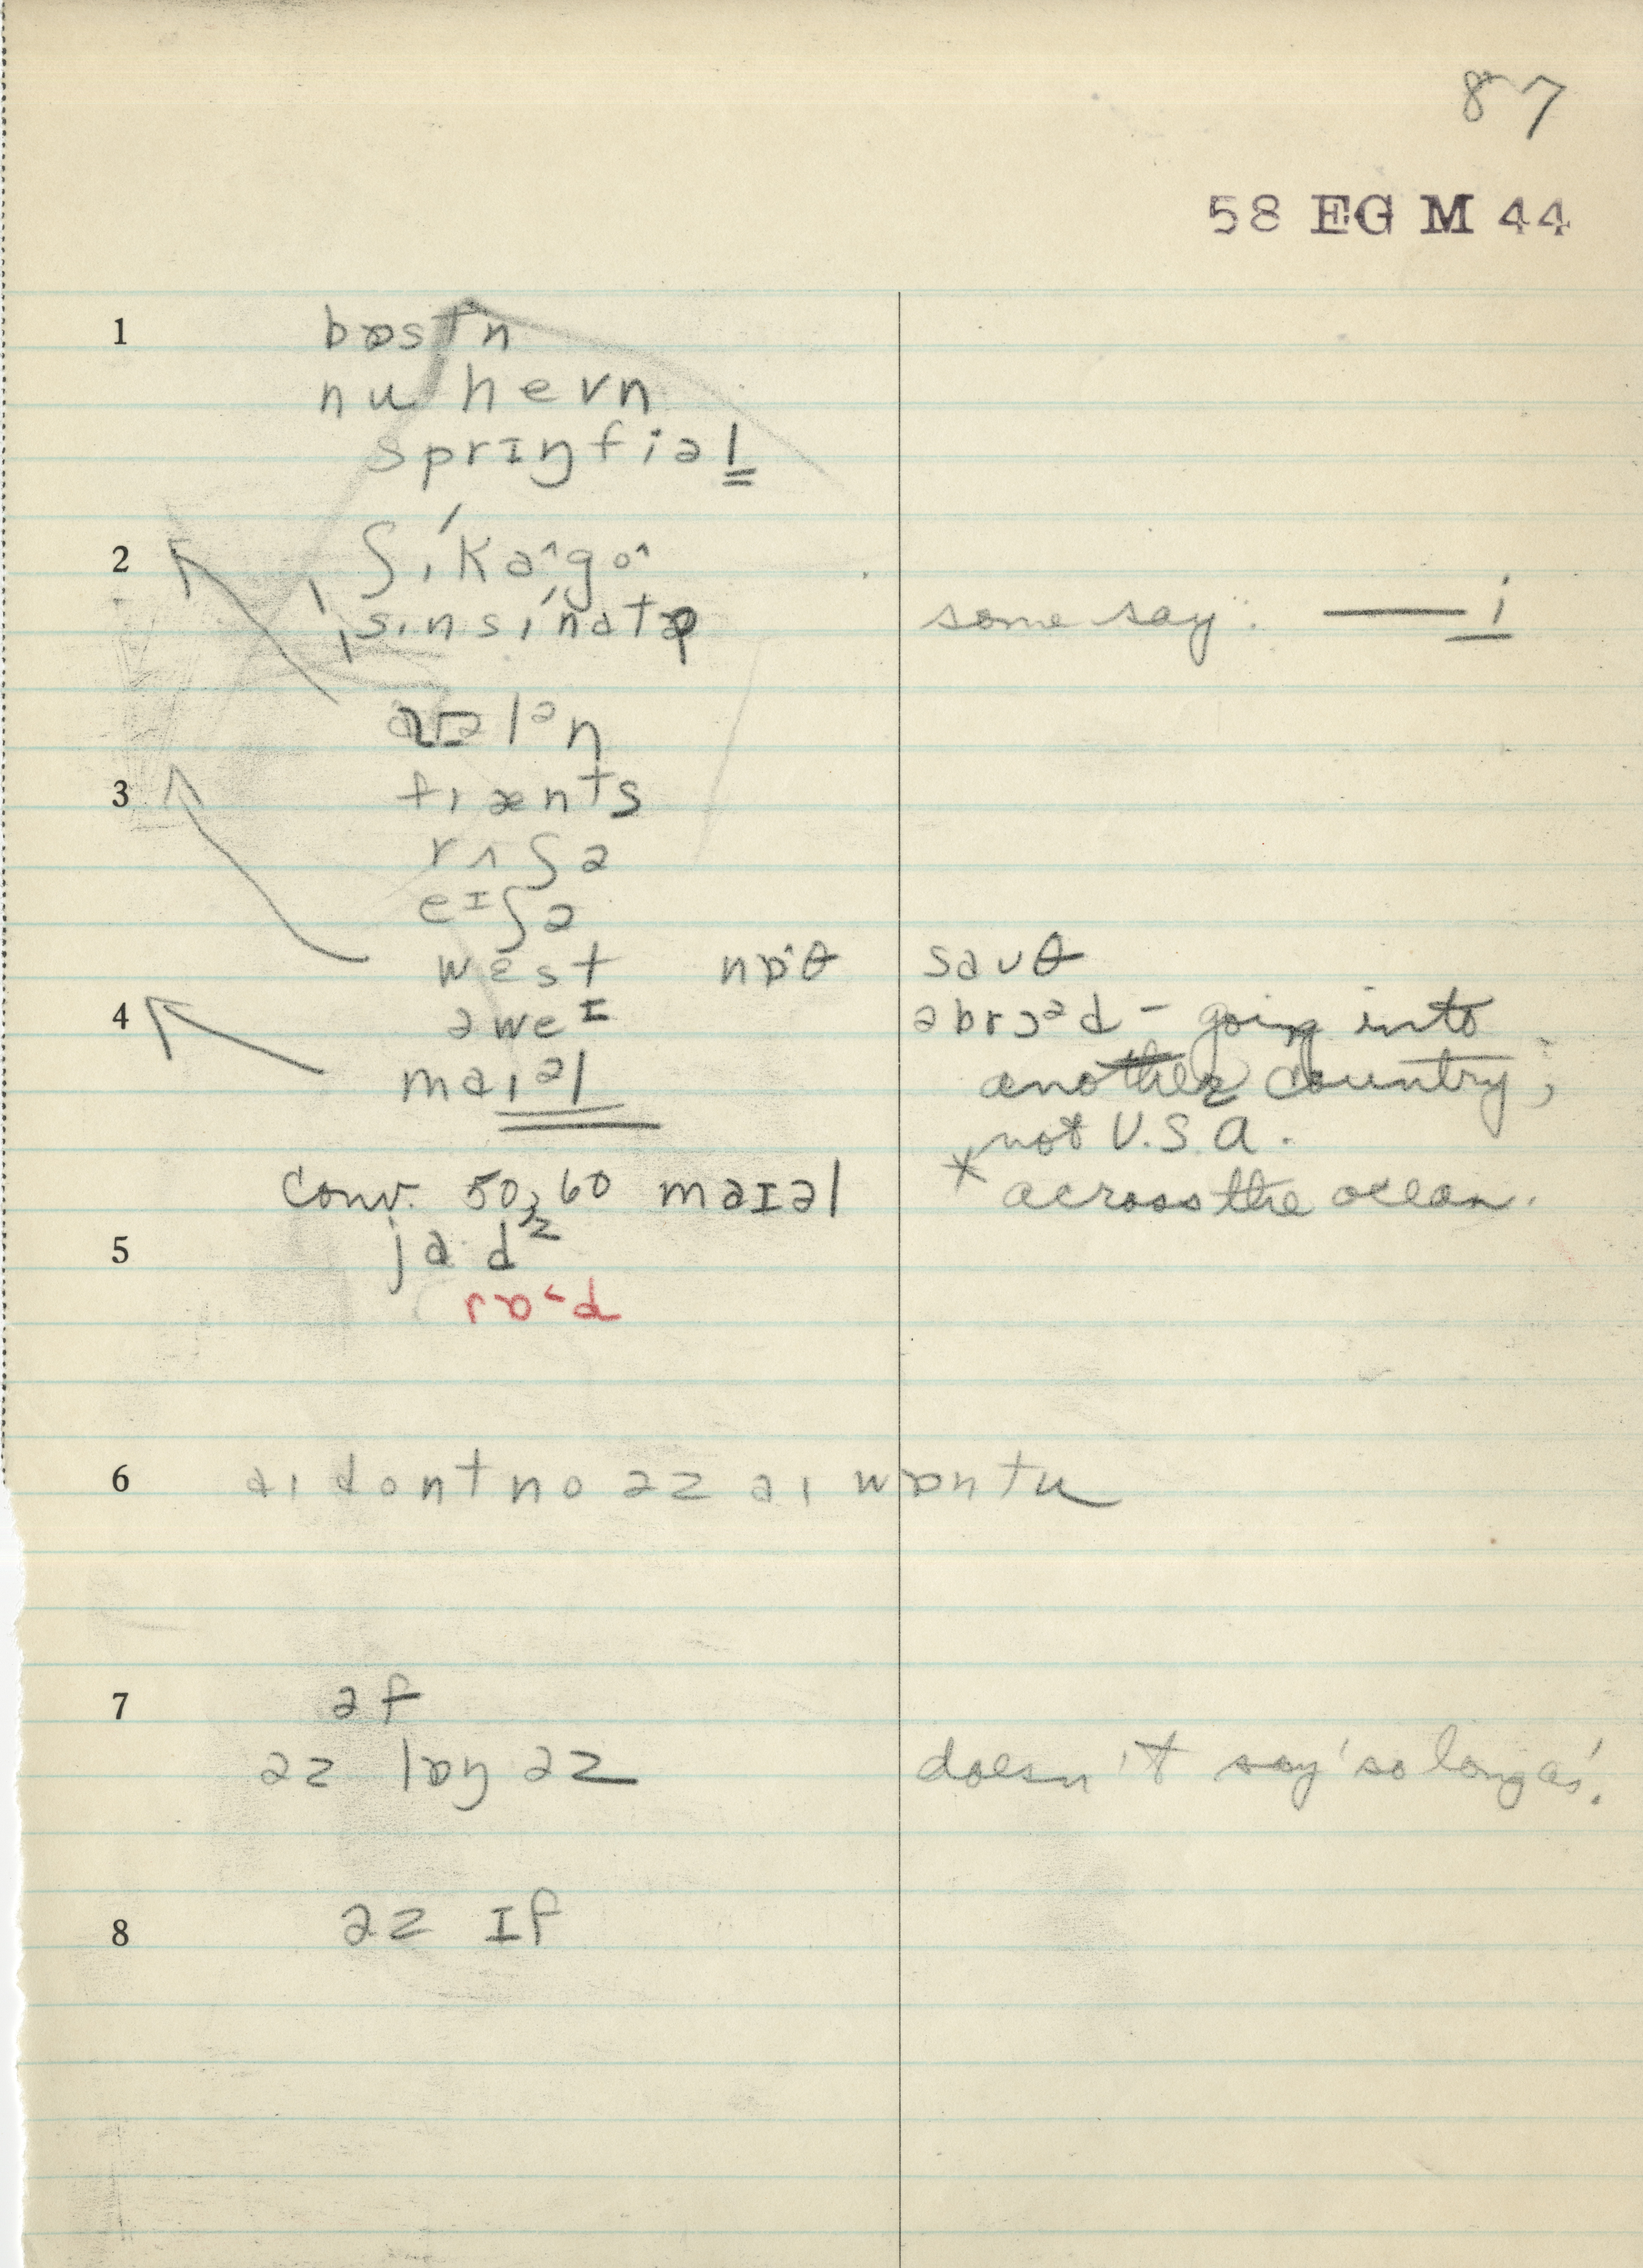 87
58 EG M 44
1 bɒstn
nu hevn
sprɪŋfiəl
2 ʃɪ́kaˆgoˆ
sɪnsɪ́nətə some say: —— i
lən
3 frænts
rʌʃə
eɪʃə
west nɒ·θ sauθ
4 əweɪ əbrɔəd – going into
maɪəl another country;
not U.S.A.
conv. 50, 60 maɪəl * across the ocean.
5 ja·dz
6 aɪ dont no əz aɪ wɒntu
7 əf
əz lɒŋ əz doesn't say 'so long as'.
8 əz ɪf